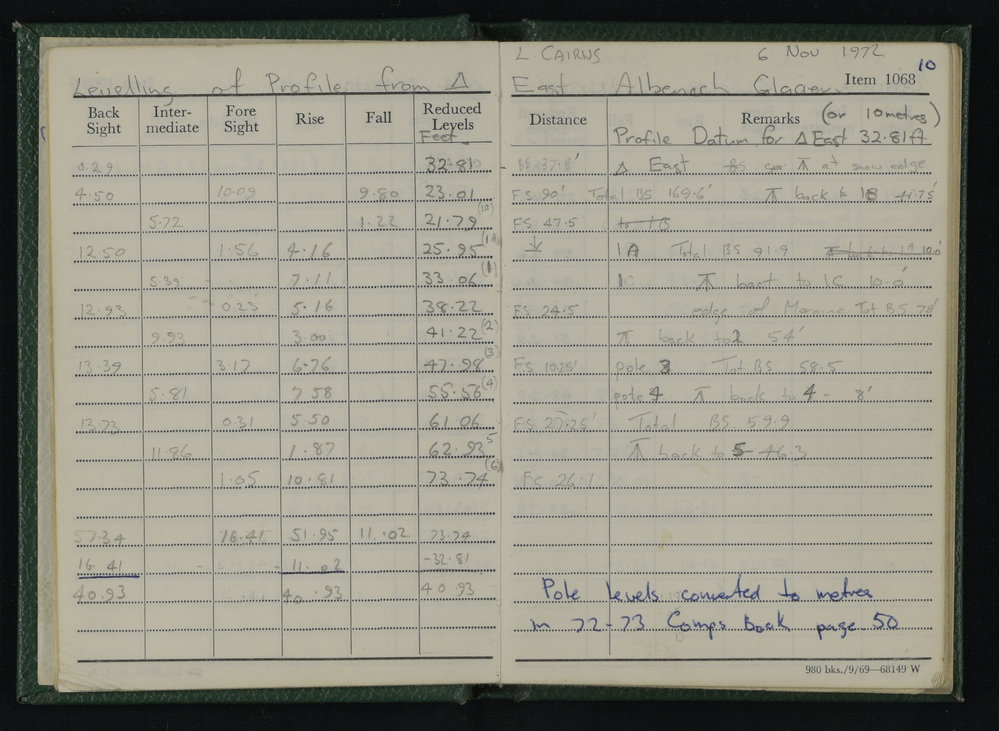 L CAIRNS 6 Nov 1972 10
Levelling of Profile from Δ East Albenach Glacier Item 1068
Back Sight Inter-mediate Fore Sight Rise Fall Reduced Levels Feet Distance Remarks (or 10 metres)
Profile Datum for Δ East 32.81 ft
0.29 32.81 BS 37.8' Δ East at snow edge
4.50 10.09 9.80 23.01 FS 90' Total BS 169.6' ⊼ back to 1B 41.75'
5.72 1.22 21.79 (1B) FS 47.5 to 1B
12.50 1.56 4.16 25.95 (1A) 1A Total BS 91.9
5.39 7.11 33.06 (1) 1C ⊼ back to 1C 10.0'
12.93 0.23 5.16 38.22 FS 24.5 edge of Moraine Tot BS 78'
9.93 3.00 41.22 (2) ⊼ back to 2 54'
13.39 3.17 6.76 47.98 (3) FS 10.25' pole 3 Tot BS 58.5
5.81 7.58 55.56 (4) pole 4 ⊼ back to 4 - 8'
13.73 0.31 5.50 61.06 FS 27.25' Total BS 59.9
11.86 1.87 62.93 5 ⊼ back to 5 - 46.3
1.05 10.81 73.74 (6) FS 26.7
57.34 16.41 51.95 11.02 73.74
16.41 - 11.02 -32.81
40.93 40.93 40.93
Pole levels converted to metres
in 72-73 Comps Book page 50
980 bks./9/69—68149 W